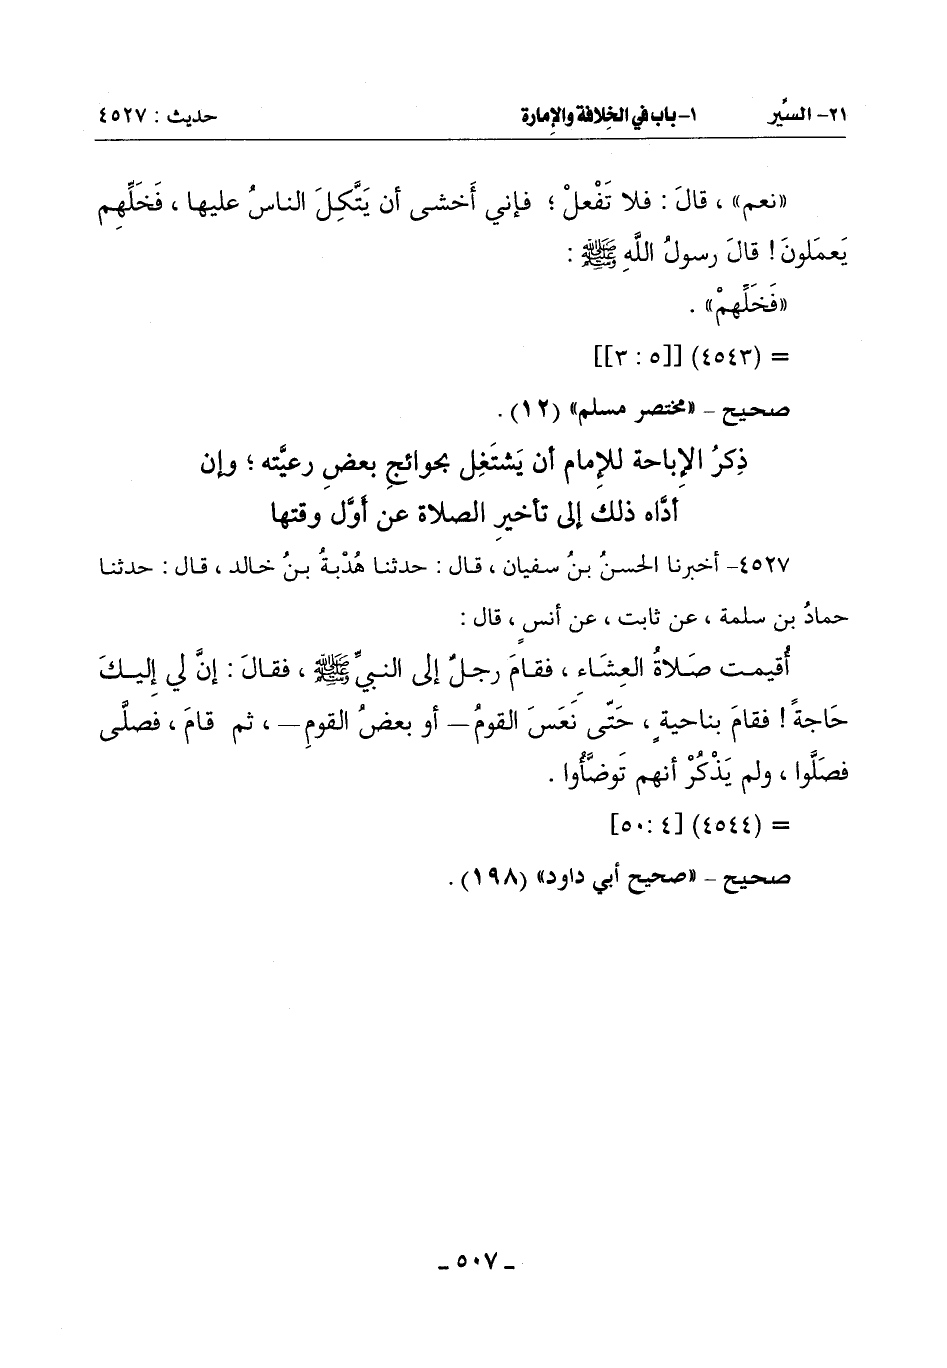 ٢١- السِّيَر ١- باب في الخِلافة والإمارة حديث : ٤٥٢٧
«نعم» ، قالَ : فلا تَفْعلْ ؛ فإني أَخشى أن يَتَّكِلَ الناسُ عليها ، فَخَلِّهِم
يَعمَلونَ ! قالَ رسولُ اللَّهِ ﷺ :
«فَخَلِّهمْ» .
= (٤٥٤٣) [[٥ : ٣]]
صحيح – «مختصر مسلم» (١٢) .
ذِكرُ الإباحة للإمام أن يَشتَغِل بحوائجِ بعضِ رعيَّته ؛ وإن
أدَّاه ذلك إلى تأخيرِ الصلاة عن أَوَّل وقتها
٤٥٢٧– أخبرنا الحسنُ بنُ سفيان ، قال : حدثنا هُدْبةُ بنُ خالد ، قال : حدثنا
حمادُ بن سلمة ، عن ثابت ، عن أنسٍ ، قال :
أُقيمت صَلاةُ العِشَاء ، فقامَ رجلٌ إلى النبيِّ ﷺ ، فقالَ : إنَّ لي إليكَ
حَاجةً ! فقامَ بناحيةٍ ، حَتَّى نَعَسَ القومُ – أو بعضُ القومِ – ، ثم قامَ ، فصلَّى
فصَلَّوا ، ولم يَذْكُرْ أنهم تَوضَّأُوا .
= (٤٥٤٤) [٤ :٥٠]
صحيح – «صحيح أبي داود» (١٩٨) .
ـ ٥٠٧ ـ